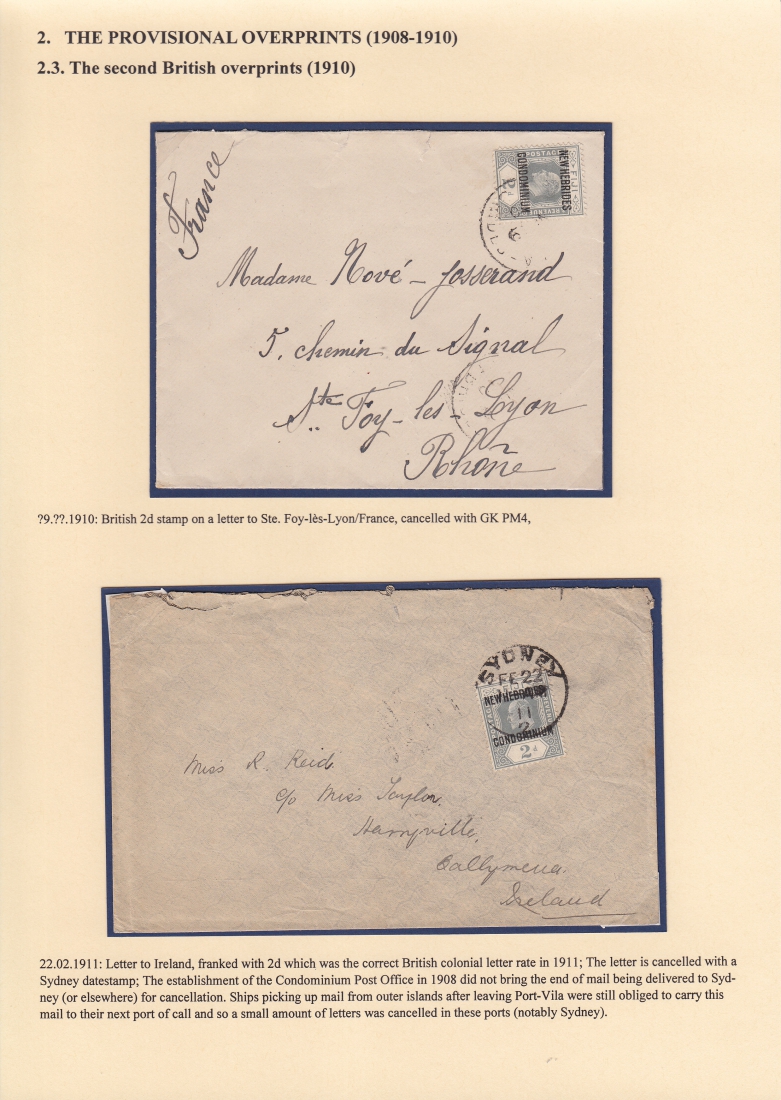 2. THE PROVISIONAL OVERPRINTS (1908-1910)
2.3. The second British overprints (1910)
France
POSTAGE
FIJI
NEW HEBRIDES
CONDOMINIUM
REVENUE
Madame Nové-Josserand
5, chemin du Signal
Ste Foy-les-Lyon
Rhône
?9.??.1910: British 2d stamp on a letter to Ste. Foy-lès-Lyon/France, cancelled with GK PM4,
SYDNEY
FE 22
NEW HEBRIDES
11
2
CONDOMINIUM
2d
Miss R. Reid.
c/o Miss Taylor,
Harryville,
Ballymena.
Ireland
22.02.1911: Letter to Ireland, franked with 2d which was the correct British colonial letter rate in 1911; The letter is cancelled with a
Sydney datestamp; The establishment of the Condominium Post Office in 1908 did not bring the end of mail being delivered to Syd-
ney (or elsewhere) for cancellation. Ships picking up mail from outer islands after leaving Port-Vila were still obliged to carry this
mail to their next port of call and so a small amount of letters was cancelled in these ports (notably Sydney).